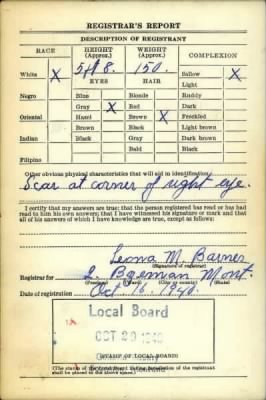 REGISTRAR'S REPORT
DESCRIPTION OF REGISTRANT
RACE HEIGHT (Approx.) WEIGHT (Approx.) COMPLEXION
White X 5ft 8. 150. Sallow X
EYES HAIR Light
Negro Blue Blonde Ruddy
Gray X Red Dark
Oriental Hazel Brown X Freckled
Brown Black Light brown
Indian Black Gray Dark brown
Bald Black
Filipino
Other obvious physical characteristics that will aid in identification
Scar at corner of right eye.
I certify that my answers are true; that the person registered has read or has had
read to him his own answers; that I have witnessed his signature or mark and that
all of his answers of which I have knowledge are true, except as follows:
Leona M. Barnes
(Signature of registrar)
Registrar for Bozeman Mont.
(Precinct) (Ward) (City or county) (State)
Date of registration Oct. 16, 1940.
Local Board
OCT 29 1940
(STAMP OF LOCAL BOARD)
(The stamp of the Local Board having jurisdiction of the registrant
shall be placed in the above space.)